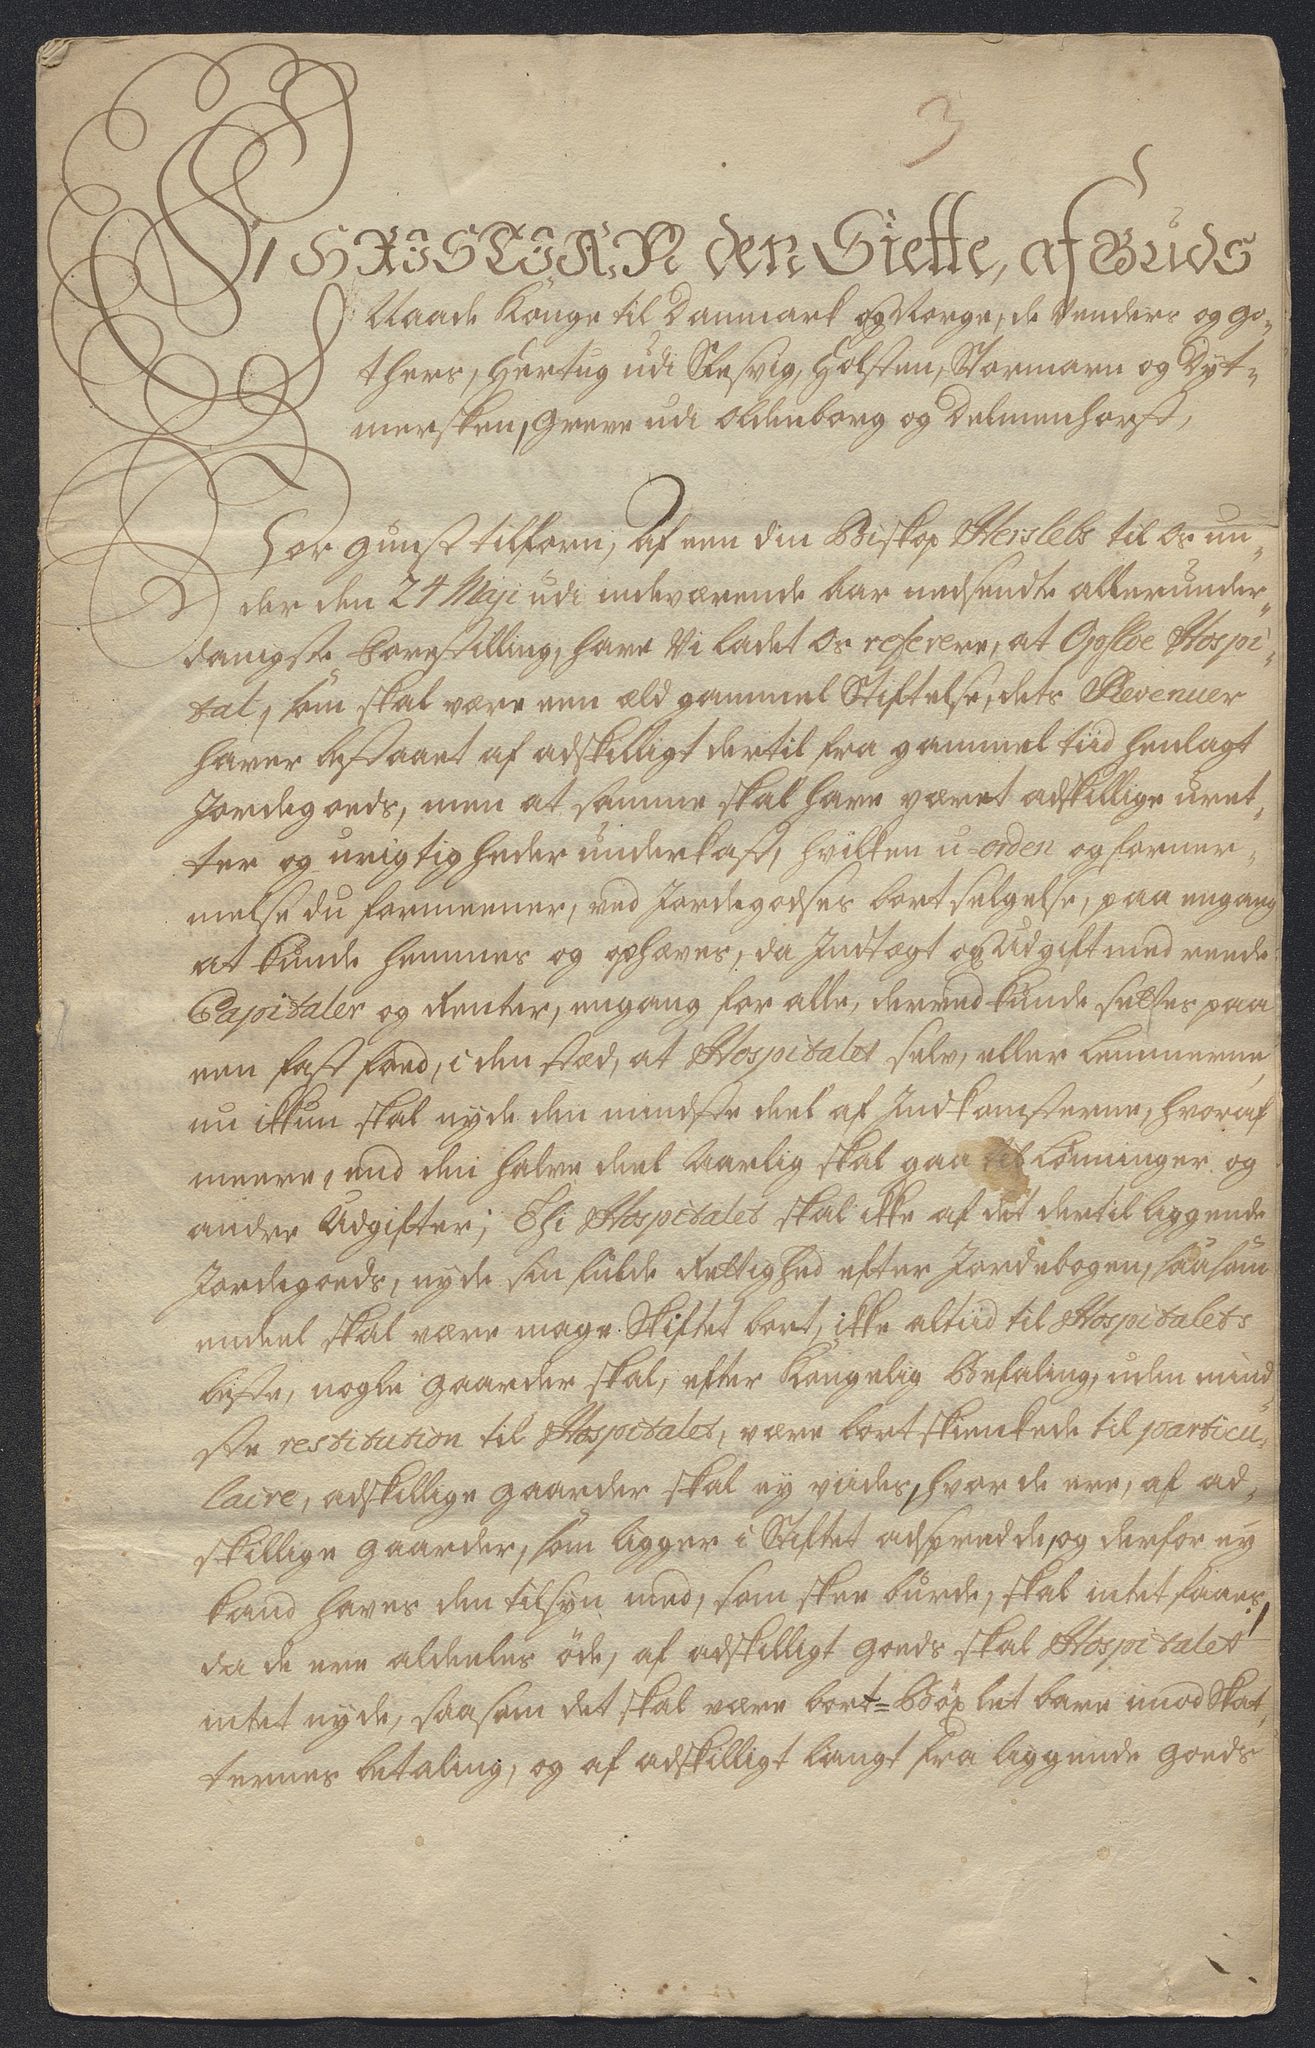 3
CHRISTIAN den Siette, af Guds
Naade Konge til Danmark og Norge, de Venders og Go-
thers, Hertug udi Slesvig, Holsten, Stormarn og Dyt-
mersken, Greve udi Oldenborg og Delmenhorst,
Vor gunst tilforn, Af een din Biskop Herslebs til Os un-
der den 24 Maji udi indeværende Aar nedsendte allerunder-
danigste Forestilling, have Vi ladet Os referere, at Opsloe Hospi-
tal, som skal være een æld gammel Stiftelse, dets Revenuer
haver bestaaet af adskilligt dertil fra gammel tiid henlagt
Jordegoeds, men at samme skal have været adskillige uret-
ter og urigtigheder underkast, hvilken u-orden og forner-
melse du formeener, ved Jordegodses bortselgelse, paa engang
at kunde hemmes og ophæves, da Indtægt og Udgift med reede
Capitaler og Renter, engang for alle, derved kunde settes paa
een fast foed, i den stæd, at Hospitalet selv, eller Lemmerne,
nu ikkun skal nyde den mindste deel af Indkomsterne, hvoraf
meere, end den halve deel Aarlig skal gaa til Lønninger og
andre Udgifter; Thi Hospitalet skal ikke af det dertil liggende
Jordegoeds, nyde sin fulde Rettighed efter Jordebogen, saasom
endeel skal være mage-Skiftet bort, ikke altiid til Hospitalets
beste, nogle gaarder skal, efter Kongelig Befaling, uden mind-
ste restitution til Hospitalet, være bortskienkede til particu-
laire, adskillige gaarder skal ey viides, hvor de ere, af ad-
skillige gaarder, som ligger i Stiftet adspredde, og derfor ey
kand haves den tilsyn med, som skee burde, skal intet faaes,
da de ere aldeeles øde, af adskilligt goeds skal Hospitalet
intet nyde, saasom det skal være bort=Bøxlet bare imod Skat-
ternes betaling, og af adskilligt langt fra liggende goeds